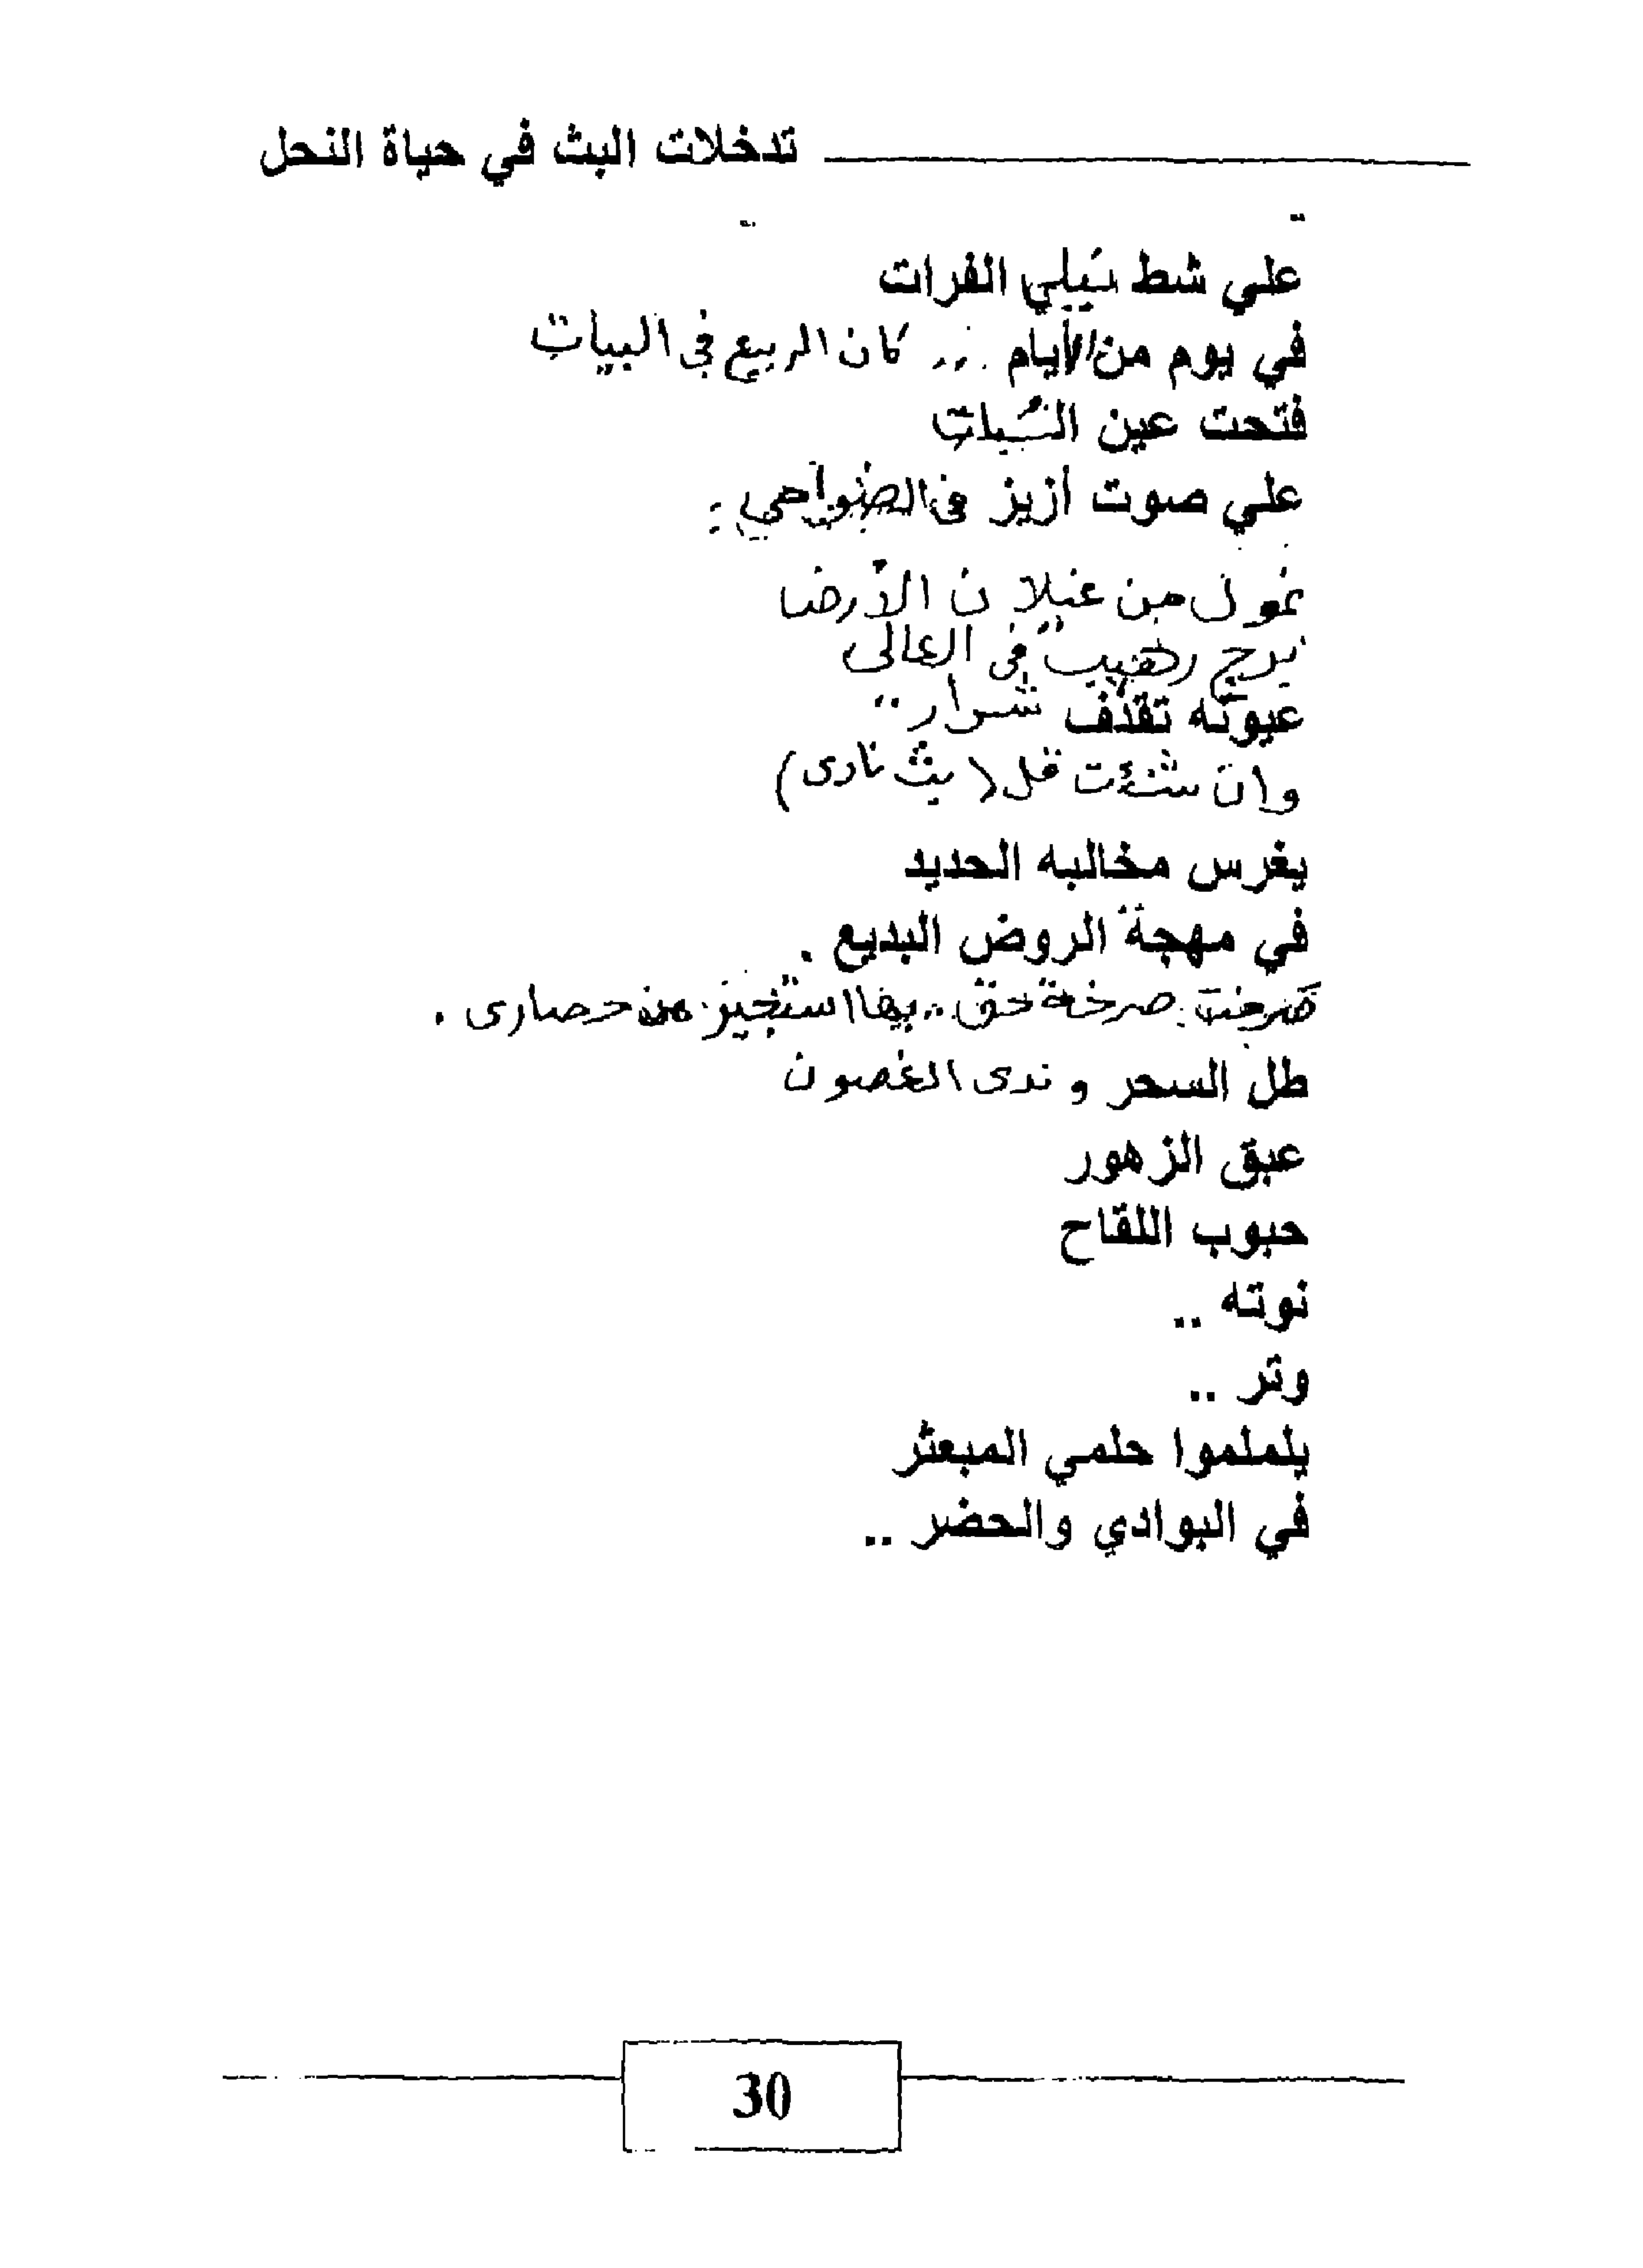 تدخلات البث في حياة النحل
علي شط نيلي الفرات
في يوم من الأيام ... كان الربيع في البيات
فتحت عين السُبات
علي صوت أزيز في الضواحي :
غول من غيلان الأرض
برج رهيب في العالى
عيونه تقذف شرار ..
وان شئت قل ( بث نارى )
يغرس مخالبه الحديد
في مهجة الروض البديع .
صرخت صرخة حق .. بها استجير من حصارى .
طل السحر و ندى الغصون
عبق الزهور
حبوب اللقاح
نوته ..
وتر ..
يلملموا حلمي المبعثر
في البوادي والحضر ..
30